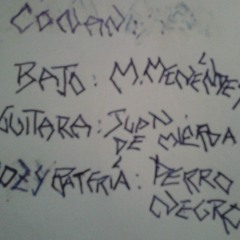 CONAN:
BAJO: M. MENÉNDEZ
GUITARA: JUAN
DE MIERDA
VOZ Y BATERIA: PERRO
NEGRO